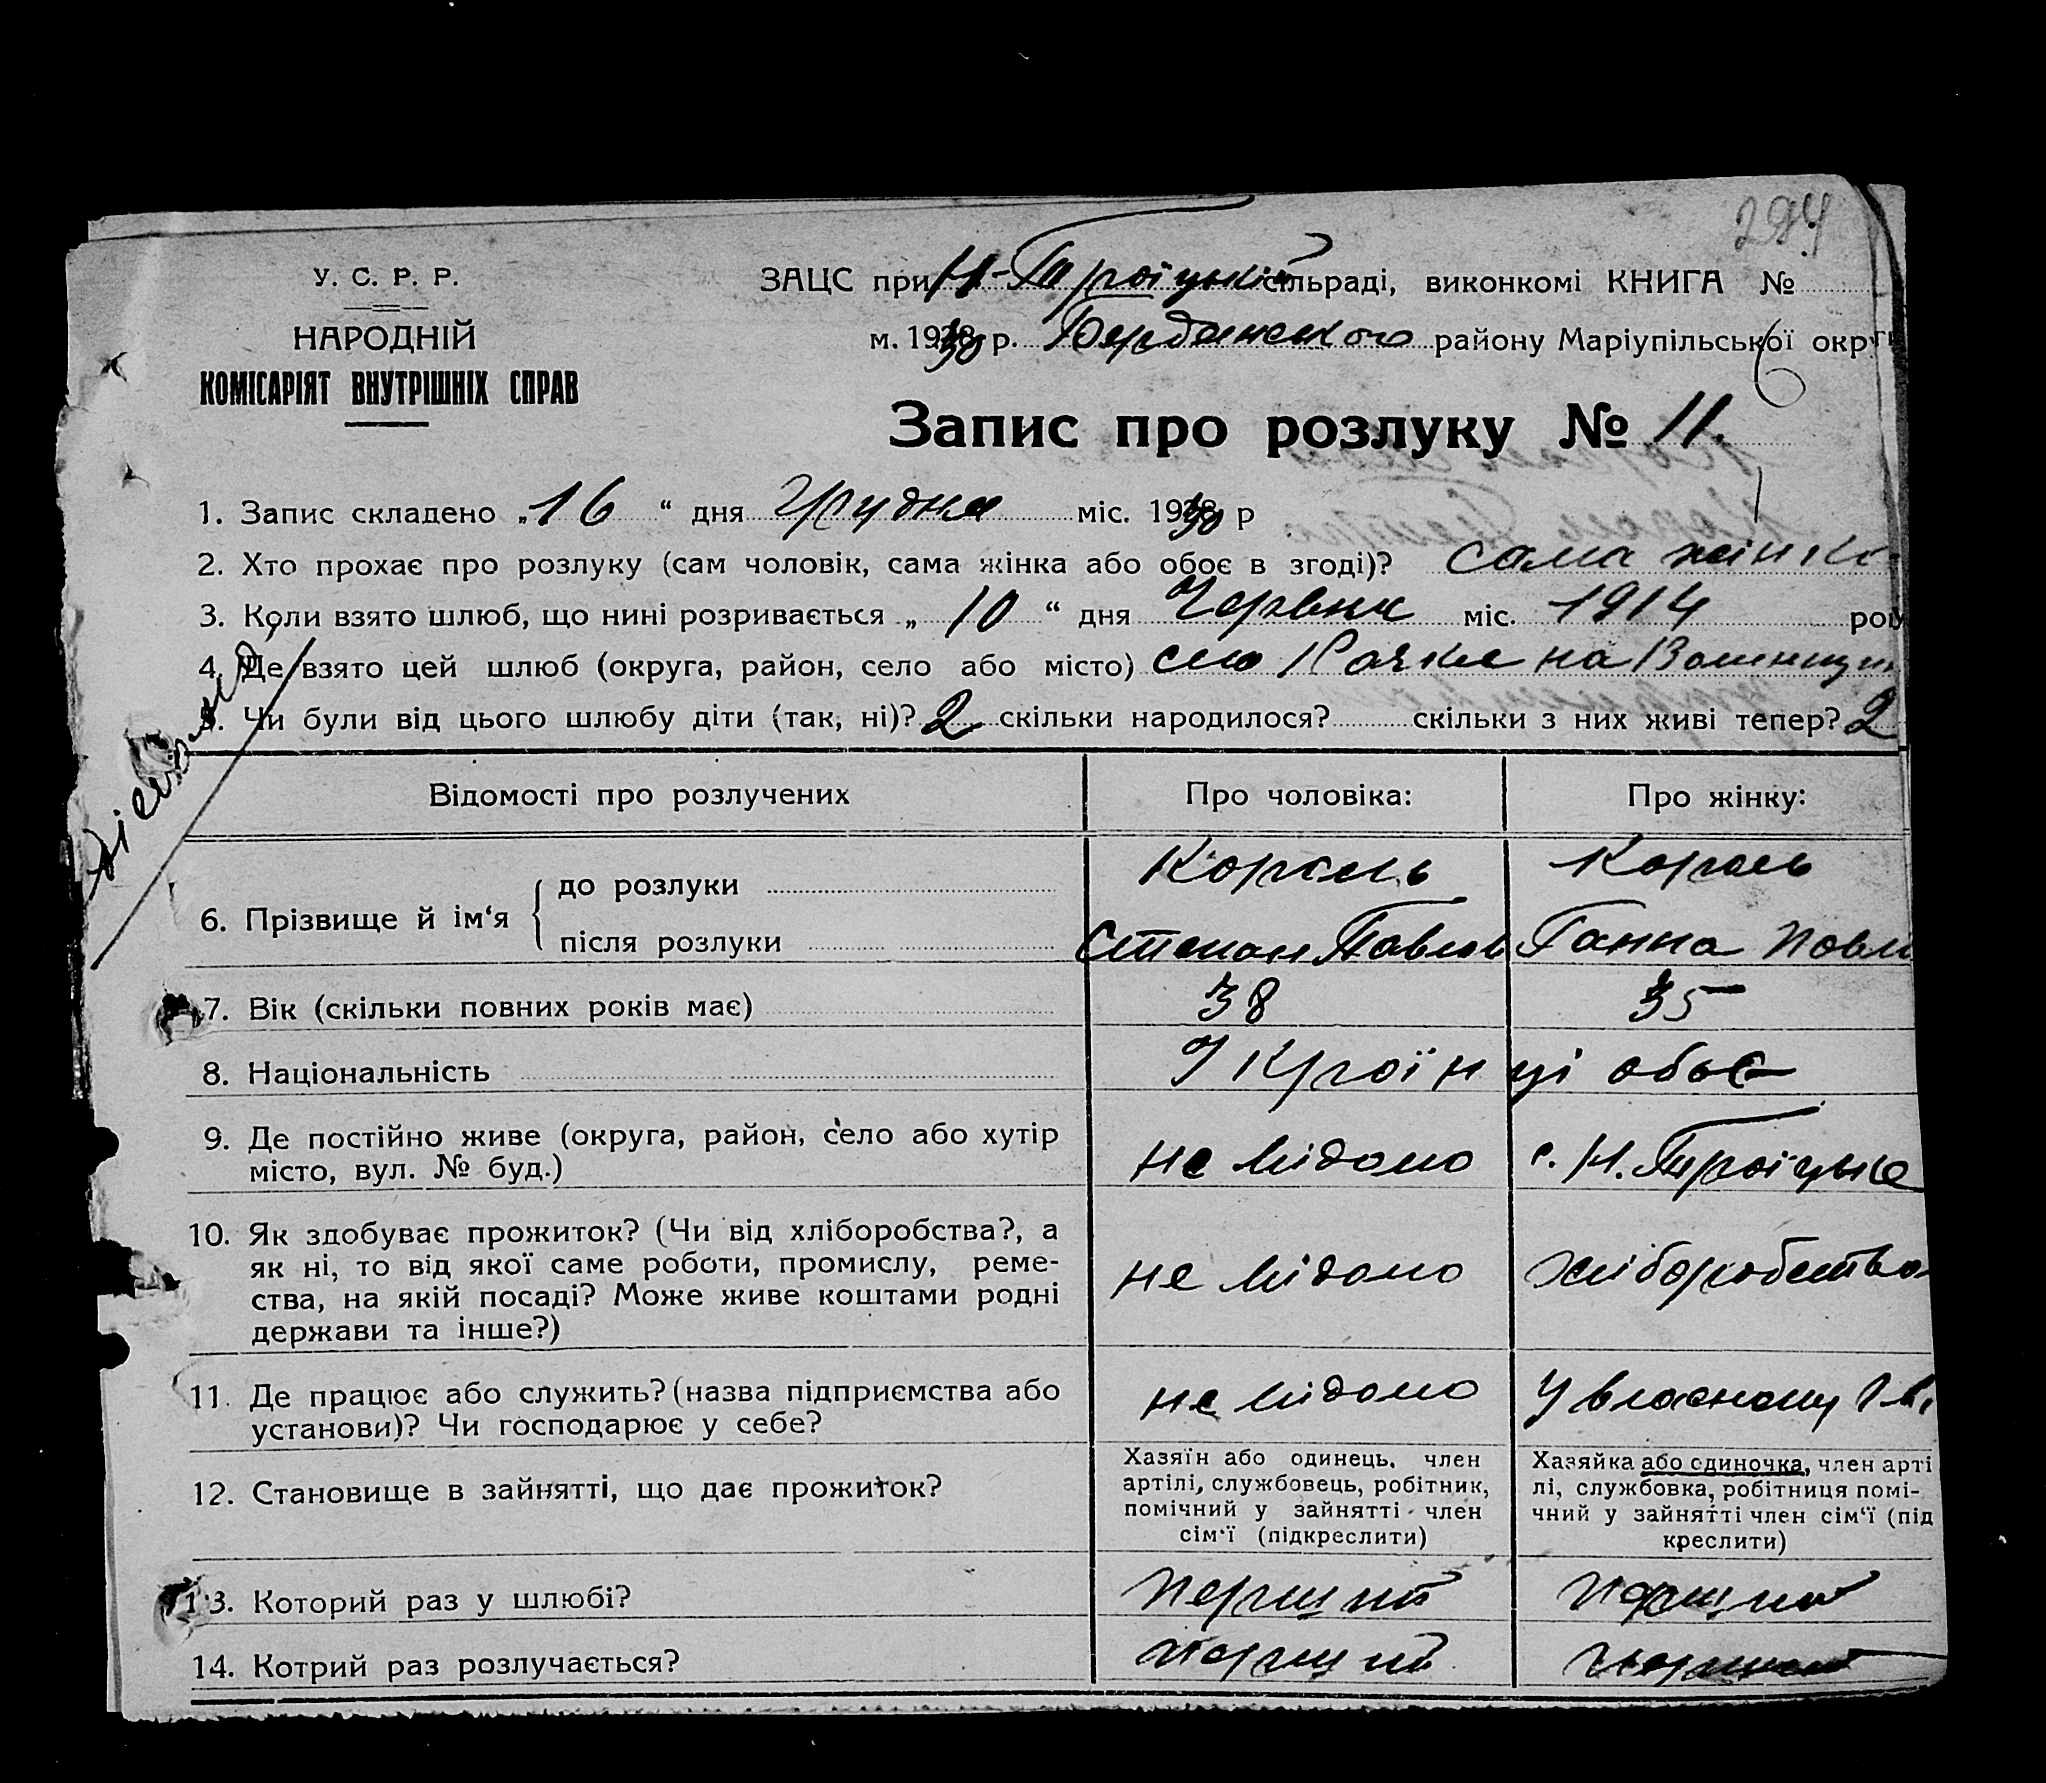 294
У. С. Р. Р.
ЗАЦС при Н-Троїцькій сільраді, виконкомі КНИГА №
НАРОДНІЙ
м. 1930 р. Бердянського району Маріупільської окр
КОМІСАРІЯТ ВНУТРІШНІХ СПРАВ
6
Запис про розлуку № 11.
1. Запис складено „16“ дня Грудня міс. 1930 р
2. Хто прохає про розлуку (сам чоловік, сама жінка або обоє в згоді)? сама жінка
3. Коли взято шлюб, що нині розривається „10“ дня Червня міс. 1914 року
4. Де взято цей шлюб (округа, район, село або місто) село на Волинщ
5. Чи були від цього шлюбу діти (так, ні)? 2 скільки народилося? скільки з них живі тепер? 2
Відомості про розлучених
Про чоловіка:
Про жінку:
6. Прізвище й ім‘я
до розлуки
Король
Король
після розлуки
Степан Павлов
Ганна Павл
7. Вік (скільки повних років має)
38
35
8. Національність
Українці обоє
9. Де постійно живе (округа, район, село або хутір
місто, вул. № буд.)
не відомо
с. Н. Троїцьке
10. Як здобуває прожиток? (Чи від хліборобства?, а
як ні, то від якої саме роботи, промислу, реме-
ства, на якій посаді? Може живе коштами родні
держави та інше?)
не відомо
хліборобства
11. Де працює або служить? (назва підприємства або
установи)? Чи господарює у себе?
не відомо
У власному
12. Становище в зайнятті, що дає прожиток?
Хазяїн або одинець, член
артілі, службовець, робітник,
помічний у зайнятті член
сім‘ї (підкреслити)
Хазяйка або одиночка, член арті
лі, службовка, робітниця помі-
чний у зайнятті член сім‘ї (під
креслити)
13. Которий раз у шлюбі?
перший
перший
14. Котрий раз розлучається?
перший
перший